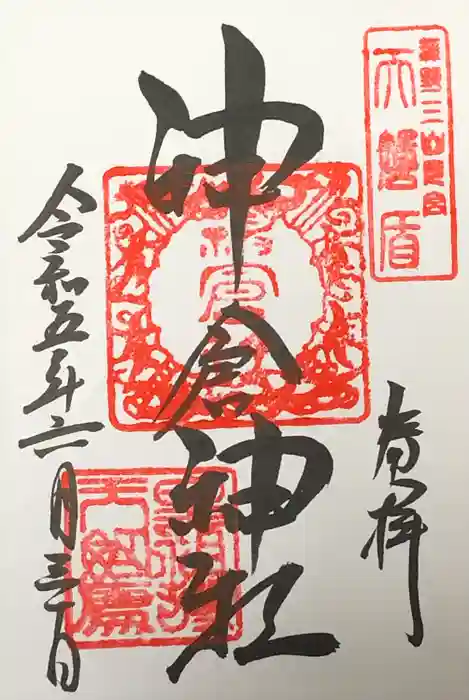 熊野三山
天磐盾
奉拝
神倉神社
令和五年六月三日